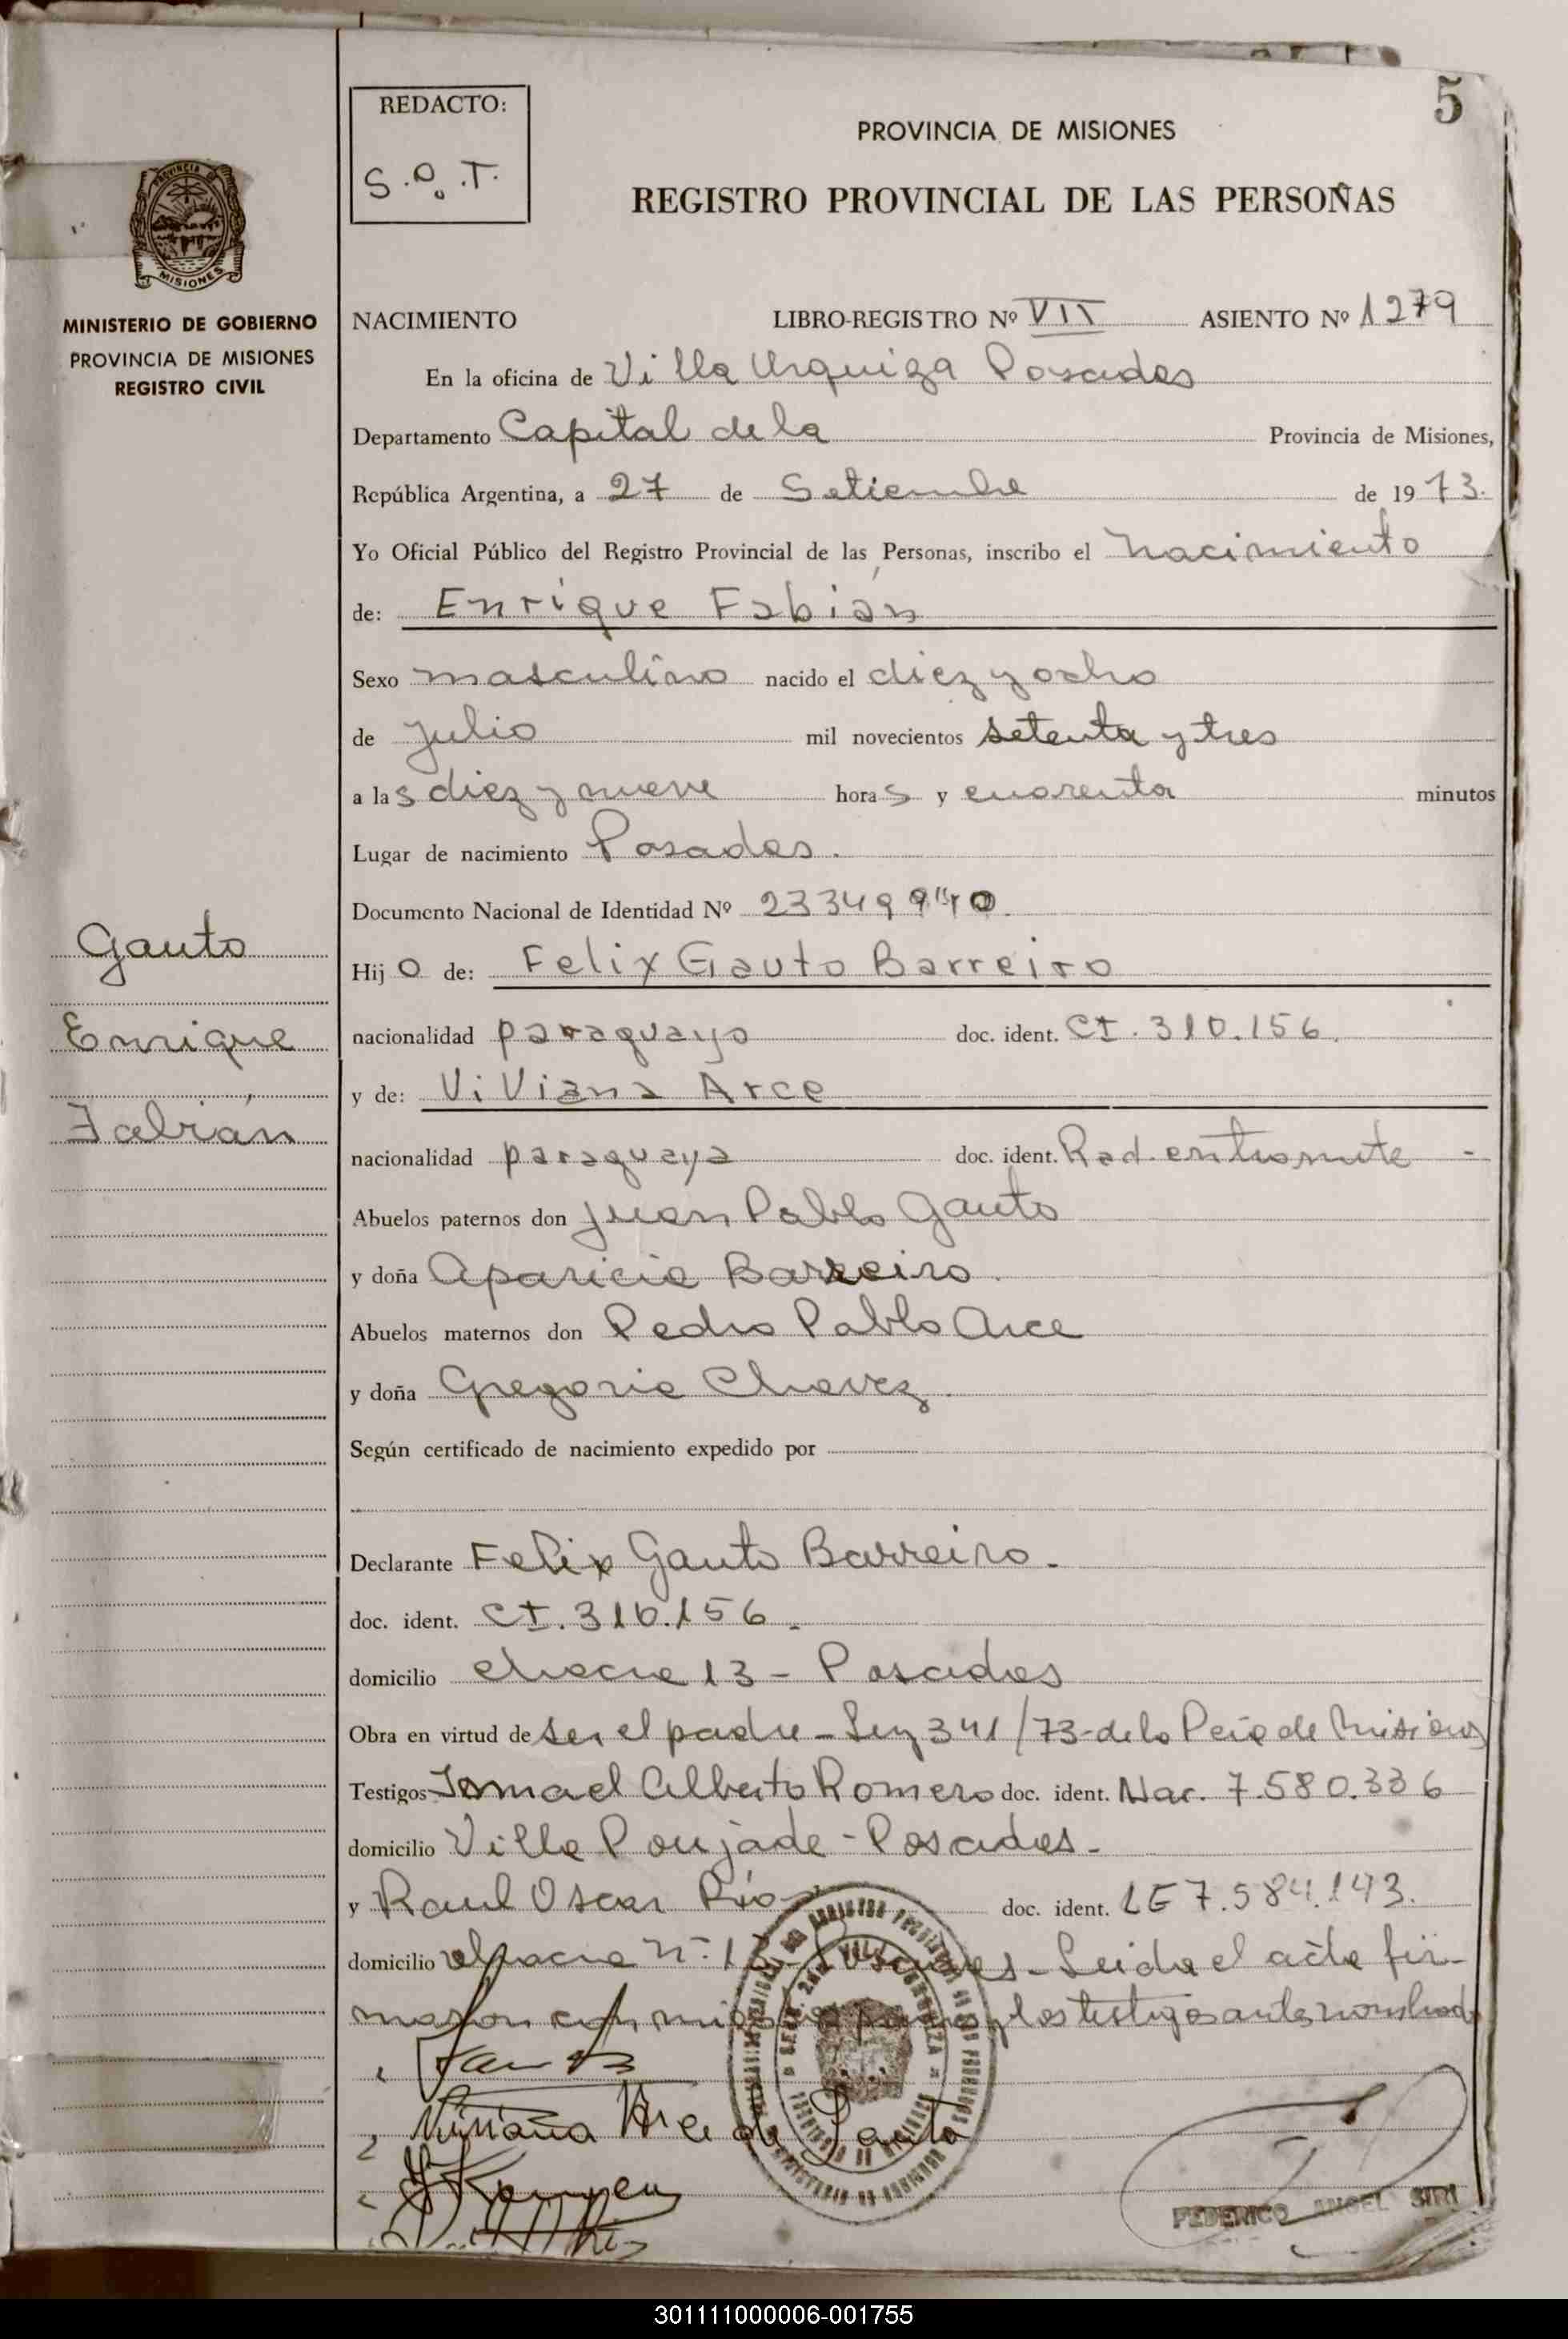 5
REDACTO:
S.O.T.
PROVINCIA DE MISIONES
REGISTRO PROVINCIAL DE LAS PERSOÑAS
PROVINCIA DE
MISIONES
MINISTERIO DE GOBIERNO
PROVINCIA DE MISIONES
REGISTRO CIVIL
NACIMIENTO LIBRO-REGISTRO Nº VII ASIENTO Nº 1279
En la oficina de Villa Urquiza Posadas
Departamento Capital de la Provincia de Misiones,
República Argentina, a 27 de Setiembre de 1973.
Yo Oficial Público del Registro Provincial de las Personas, inscribo el nacimiento
de: Enrique Fabián
Sexo masculino nacido el diez y ocho
de julio mil novecientos setenta y tres
a las diez y nueve horas y cuarenta minutos
Lugar de nacimiento Posadas.
Documento Nacional de Identidad Nº
Gauto
Enrique
Fabián
Hijo de: Felix Gauto Barreiro
nacionalidad paraguayo doc. ident. CI. 310.156.
y de: ViViana Arce
nacionalidad paraguaya doc. ident. Rad.
Abuelos paternos don Juan Pablo Gauto
y doña Aparicia Barreiro.
Abuelos maternos don Pedro Pablo Arce
y doña Gregoria Chavez.
Según certificado de nacimiento expedido por
Declarante Felix Gauto Barreiro.
doc. ident. CI. 310.156.
domicilio chacra 13 - Posadas
Obra en virtud de ser el padre - Ley 341/73 - de la Pcia de Misiones
Testigos Ismael Alberto Romero doc. ident. Nac. 7.580.336
domicilio Villa Poujade - Posadas -
y Raul Oscar Río doc. ident. LE 7.584.143.
domicilio chacra nº Posadas - Leida el acta fir-
maron con migo los padres y los testigos antes nombrados
Viviana Arce de Gauto
FEDERICO ANGEL SIRI
301111000006-001755